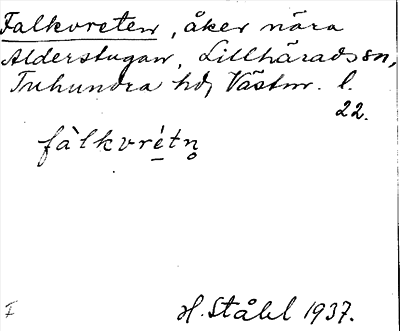 Falkvreten, åker nära
Ålderstugan, Lillhärads sn,
Tuhundra hd, Västm. l.
22.
fàlkvrétn̥
F
H. Ståhl 1937.